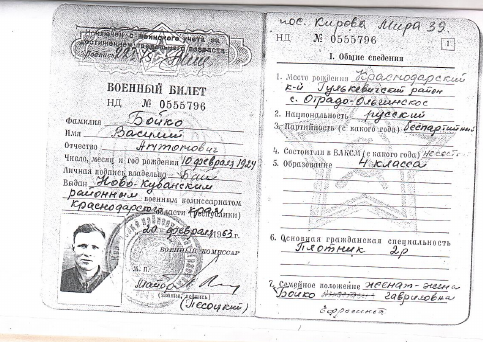 учета
предельного возраста
ВОЕННЫЙ БИЛЕТ
НД № 0555796
Фамилия Бойко
Имя Василий
Отчество Антонович
Число, месяц и год рождения 10 февраля 1924
Личная подпись владельца
Выдан Ново-Кубанским
районным военным комиссариатом
Краснодарского края области (республики)
20 февраля 1963 г.
военный комиссар
М. П.
майор
(Песоцкий)
пос. Кирова Мира 39.
НД № 0555796
1
I. Общие сведения
1. Место рождения Краснодарский
к-й Гулькевичский район
с. Отрадо-Ольгинское
2. Национальность русский
3. Партийность (с какого года) беспартийный
4. Состоял ли в ВЛКСМ (с какого года)
5. Образование 4 класса
6. Основная гражданская специальность
Плотник 2р
7. Семейное положение женат-жена
Бойко Гавриловна
Ефросинья